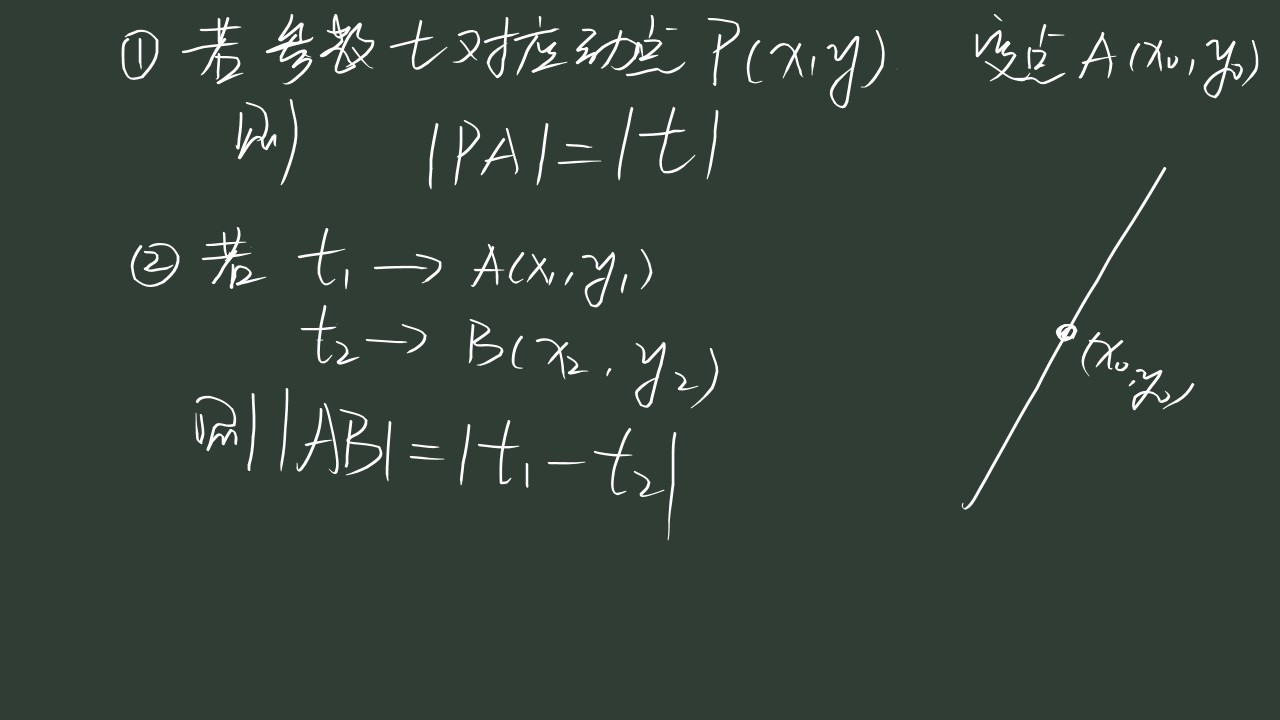 ① 若参数t对应动点P(x,y) 定点A(x₀,y₀)
则 |PA|=|t|
② 若 t₁→A(x₁,y₁)
t₂→B(x₂,y₂)
(x₀,y₀)
则||AB|=|t₁-t₂|